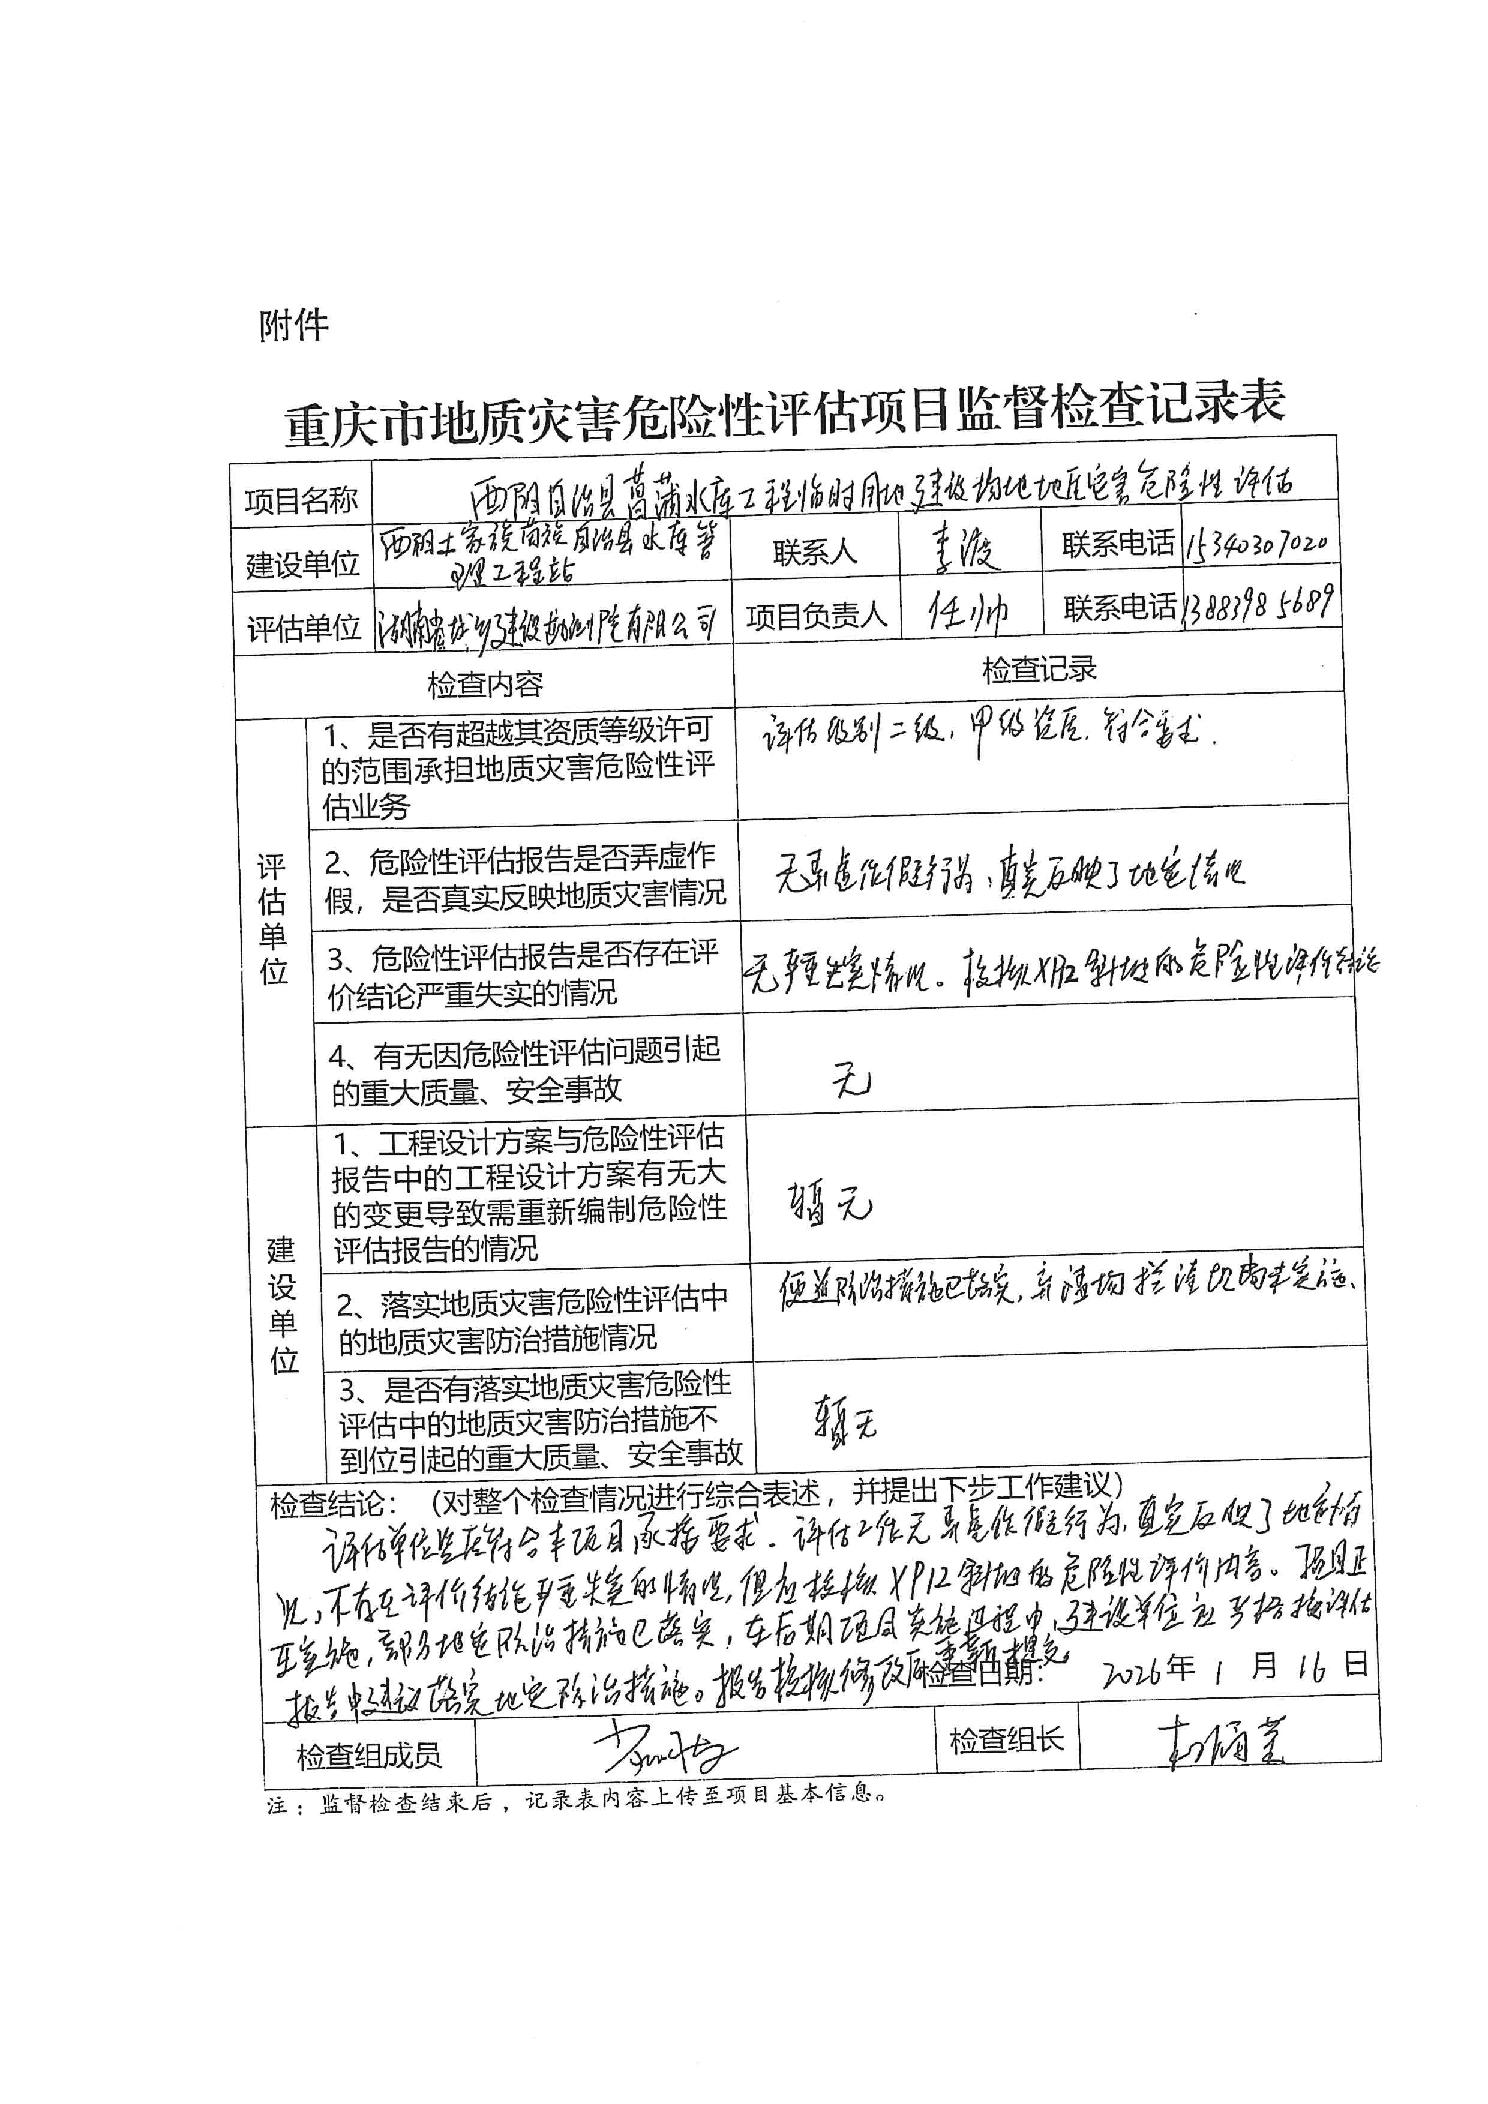 附件
重庆市地质灾害危险性评估项目监督检查记录表
项目名称 酉阳自治县菖蒲水库工程临时用地建设场地地质灾害危险性评估
建设单位 酉阳土家族苗族自治县水库管
理工程站 联系人 李波 联系电话 15340307020
评估单位 湖南省 建设勘测院有限公司 项目负责人 任帅 联系电话 13883985689
检查内容 检查记录
评估单位
1、是否有超越其资质等级许可
的范围承担地质灾害危险性评
估业务
评估级别二级,甲级资质.符合要求.
2、危险性评估报告是否弄虚作
假，是否真实反映地质灾害情况
无弄虚作假行为,真实反映了地灾情况
3、危险性评估报告是否存在评
价结论严重失实的情况
无严重失实情况。校核XP12斜坡的危险性评价结论
4、有无因危险性评估问题引起
的重大质量、安全事故
无
建设单位
1、工程设计方案与危险性评估
报告中的工程设计方案有无大
的变更导致需重新编制危险性
评估报告的情况
暂无
2、落实地质灾害危险性评估中
的地质灾害防治措施情况
便道防治措施已落实,弃渣场拦渣坝尚未实施、
3、是否有落实地质灾害危险性
评估中的地质灾害防治措施不
到位引起的重大质量、安全事故
暂无
检查结论：（对整个检查情况进行综合表述，并提出下步工作建议）
评估单位资质符合本项目承接要求.评估工作无弄虚作假行为,真实反映了地灾情
况,不存在评价结论严重失实的情况,但应校核XP12斜坡的危险性评价内容。项目正
在实施,部分地灾防治措施已落实,在后期项目实施过程中,建设单位应严格按评估
报告中建议落实地灾防治措施。报告校核修改后重新提交。
检查日期： 2026年 1 月 16 日
检查组成员 检查组长
注：监督检查结束后，记录表内容上传至项目基本信息。